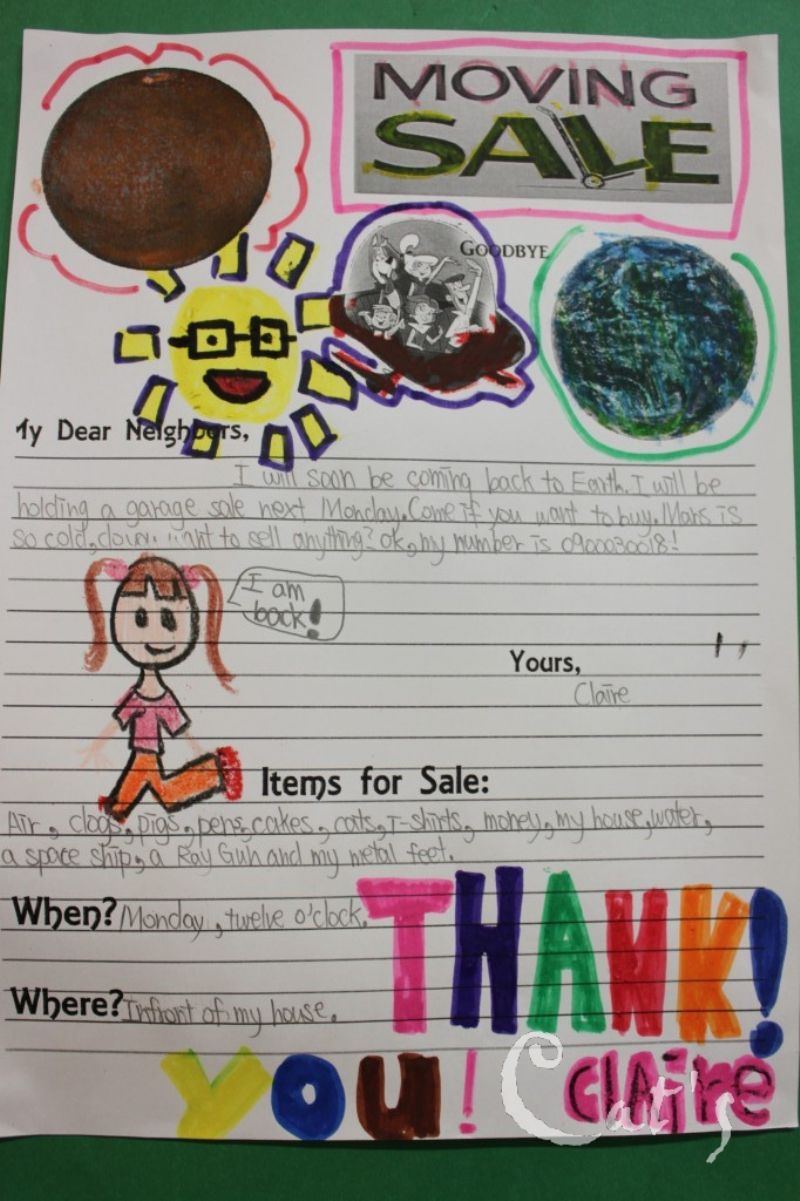 MOVING
SALE
GOODBYE
My Dear Neighbors,
I will soon be coming back to Earth. I will be
holding a garage sale next Monday. Come if you want to buy. Mars is
so cold, want to sell anything? ok, my number is 0900030018!
I am
back!
Yours,
Claire
Items for Sale:
Air, clogs, pigs, pens, cakes, cats, T-shirts, money, my house, water,
a space ship, a Ray Gun and my metal feet.
When? Monday, twelve o'clock.
Where? Infront of my house.
THANK!
you!
Claire
Cat's